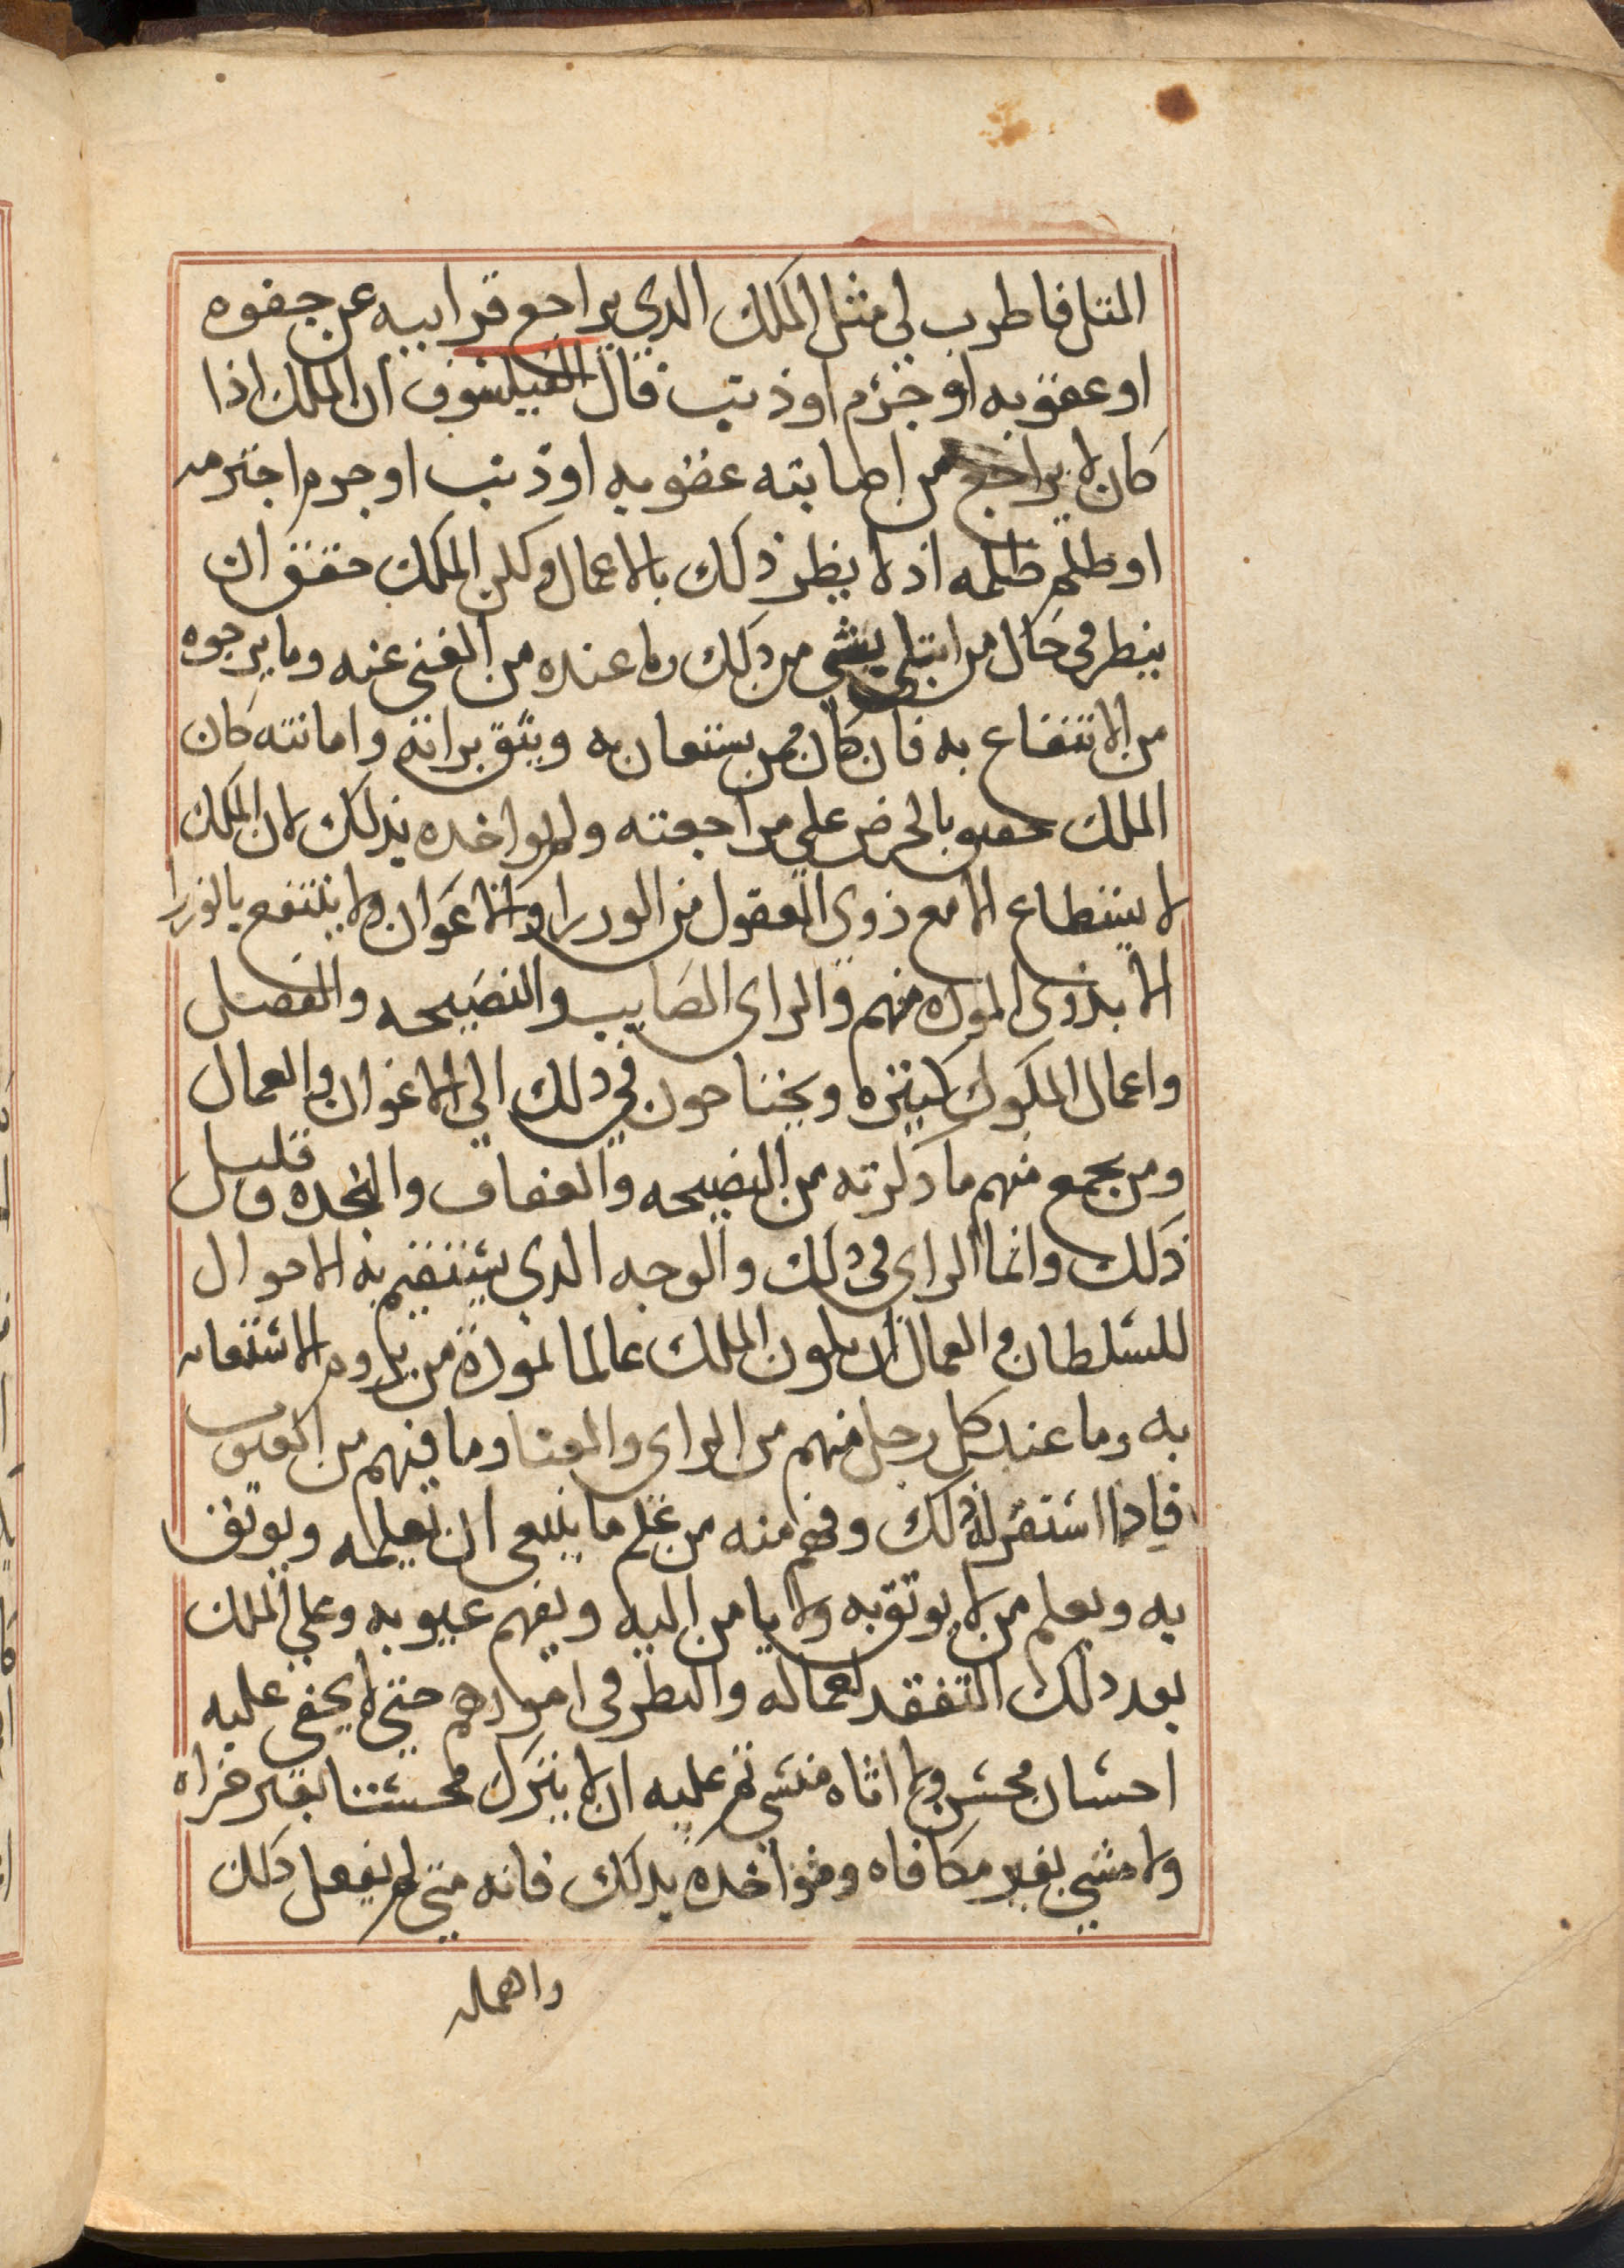 المثل فاضرب لي مثل الملك الدي يراجع قرابيه عن جفوه
او عقوبه او جرم او ذنب قال الفيلسوف ان الملك اذا
كان لا يراجع من اصابته عقوبه او ذنب او جرم اجترمه
او ظلم ظلمه اذ لا يضر ذلك بالاعمال ولكن الملك حقق ان
ينظر في حال من ابتلى بشي من ذلك وما عنده من الغنى عنه وما يرجوه
من الانتفاع به فان كان ممن يستعان به ويثق برايه وامانته كان
الملك حقيق بالحرض على مراجعته ولم يواخده بذلك لان الملك
لا يستطاع الا مع ذوي العقول من الوررا والاعوان ولا ينتفع بالوزرا
الا بذوي الموده منهم والراى الصايب والنصيحه والفضل
واعمال الملوك كثيره ويحتاجون في ذلك الي الاعوان والعمال
ومن يجمع منهم ما ذكرته من النصيحه والعفاف والنجده قليل
ذلك وانما الراي في ذلك والوجه الدي يستقيم به الاحوال
للسلطان والعمال ان يكون الملك عالما بموده من يروم الاستعانه
به وما عند كل رجل منهم من الراى والغنا وما فيهم من العيوب
فادا استقر له ذلك وفهم منه من علم ما ينبغي ان يعلمه ويوثق
به ويعلم من لا يوثق به ولا يامن اليه ويفهم عيوبه وعلي الملك
بعد ذلك التفقد لعماله والنظر في امورهم حتى لا يخفى عليه
احسان محسن ولا اثاه مسي ثم عليه ان لا يترك محسنا بغير جزاه
ولا مسي بغير مكافاه وموآخده بذلك فانه متي لم يفعل ذلك
واهمله